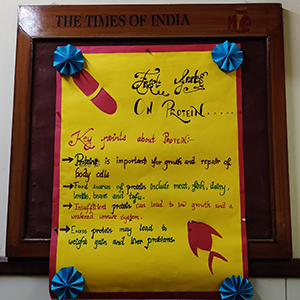 THE TIMES OF INDIA
ne
ON PROTEIN.....
Key points about PROTEIN:-
→ Protein is important for growth and repair of
body cells
→ Food sources of protein include meat, fish, dairy,
lentils, beans and tofu.
→ Insufficient protein can lead to low growth and a
weakened immune system.
→ Excess protein may lead to
weight gain and liver problems.